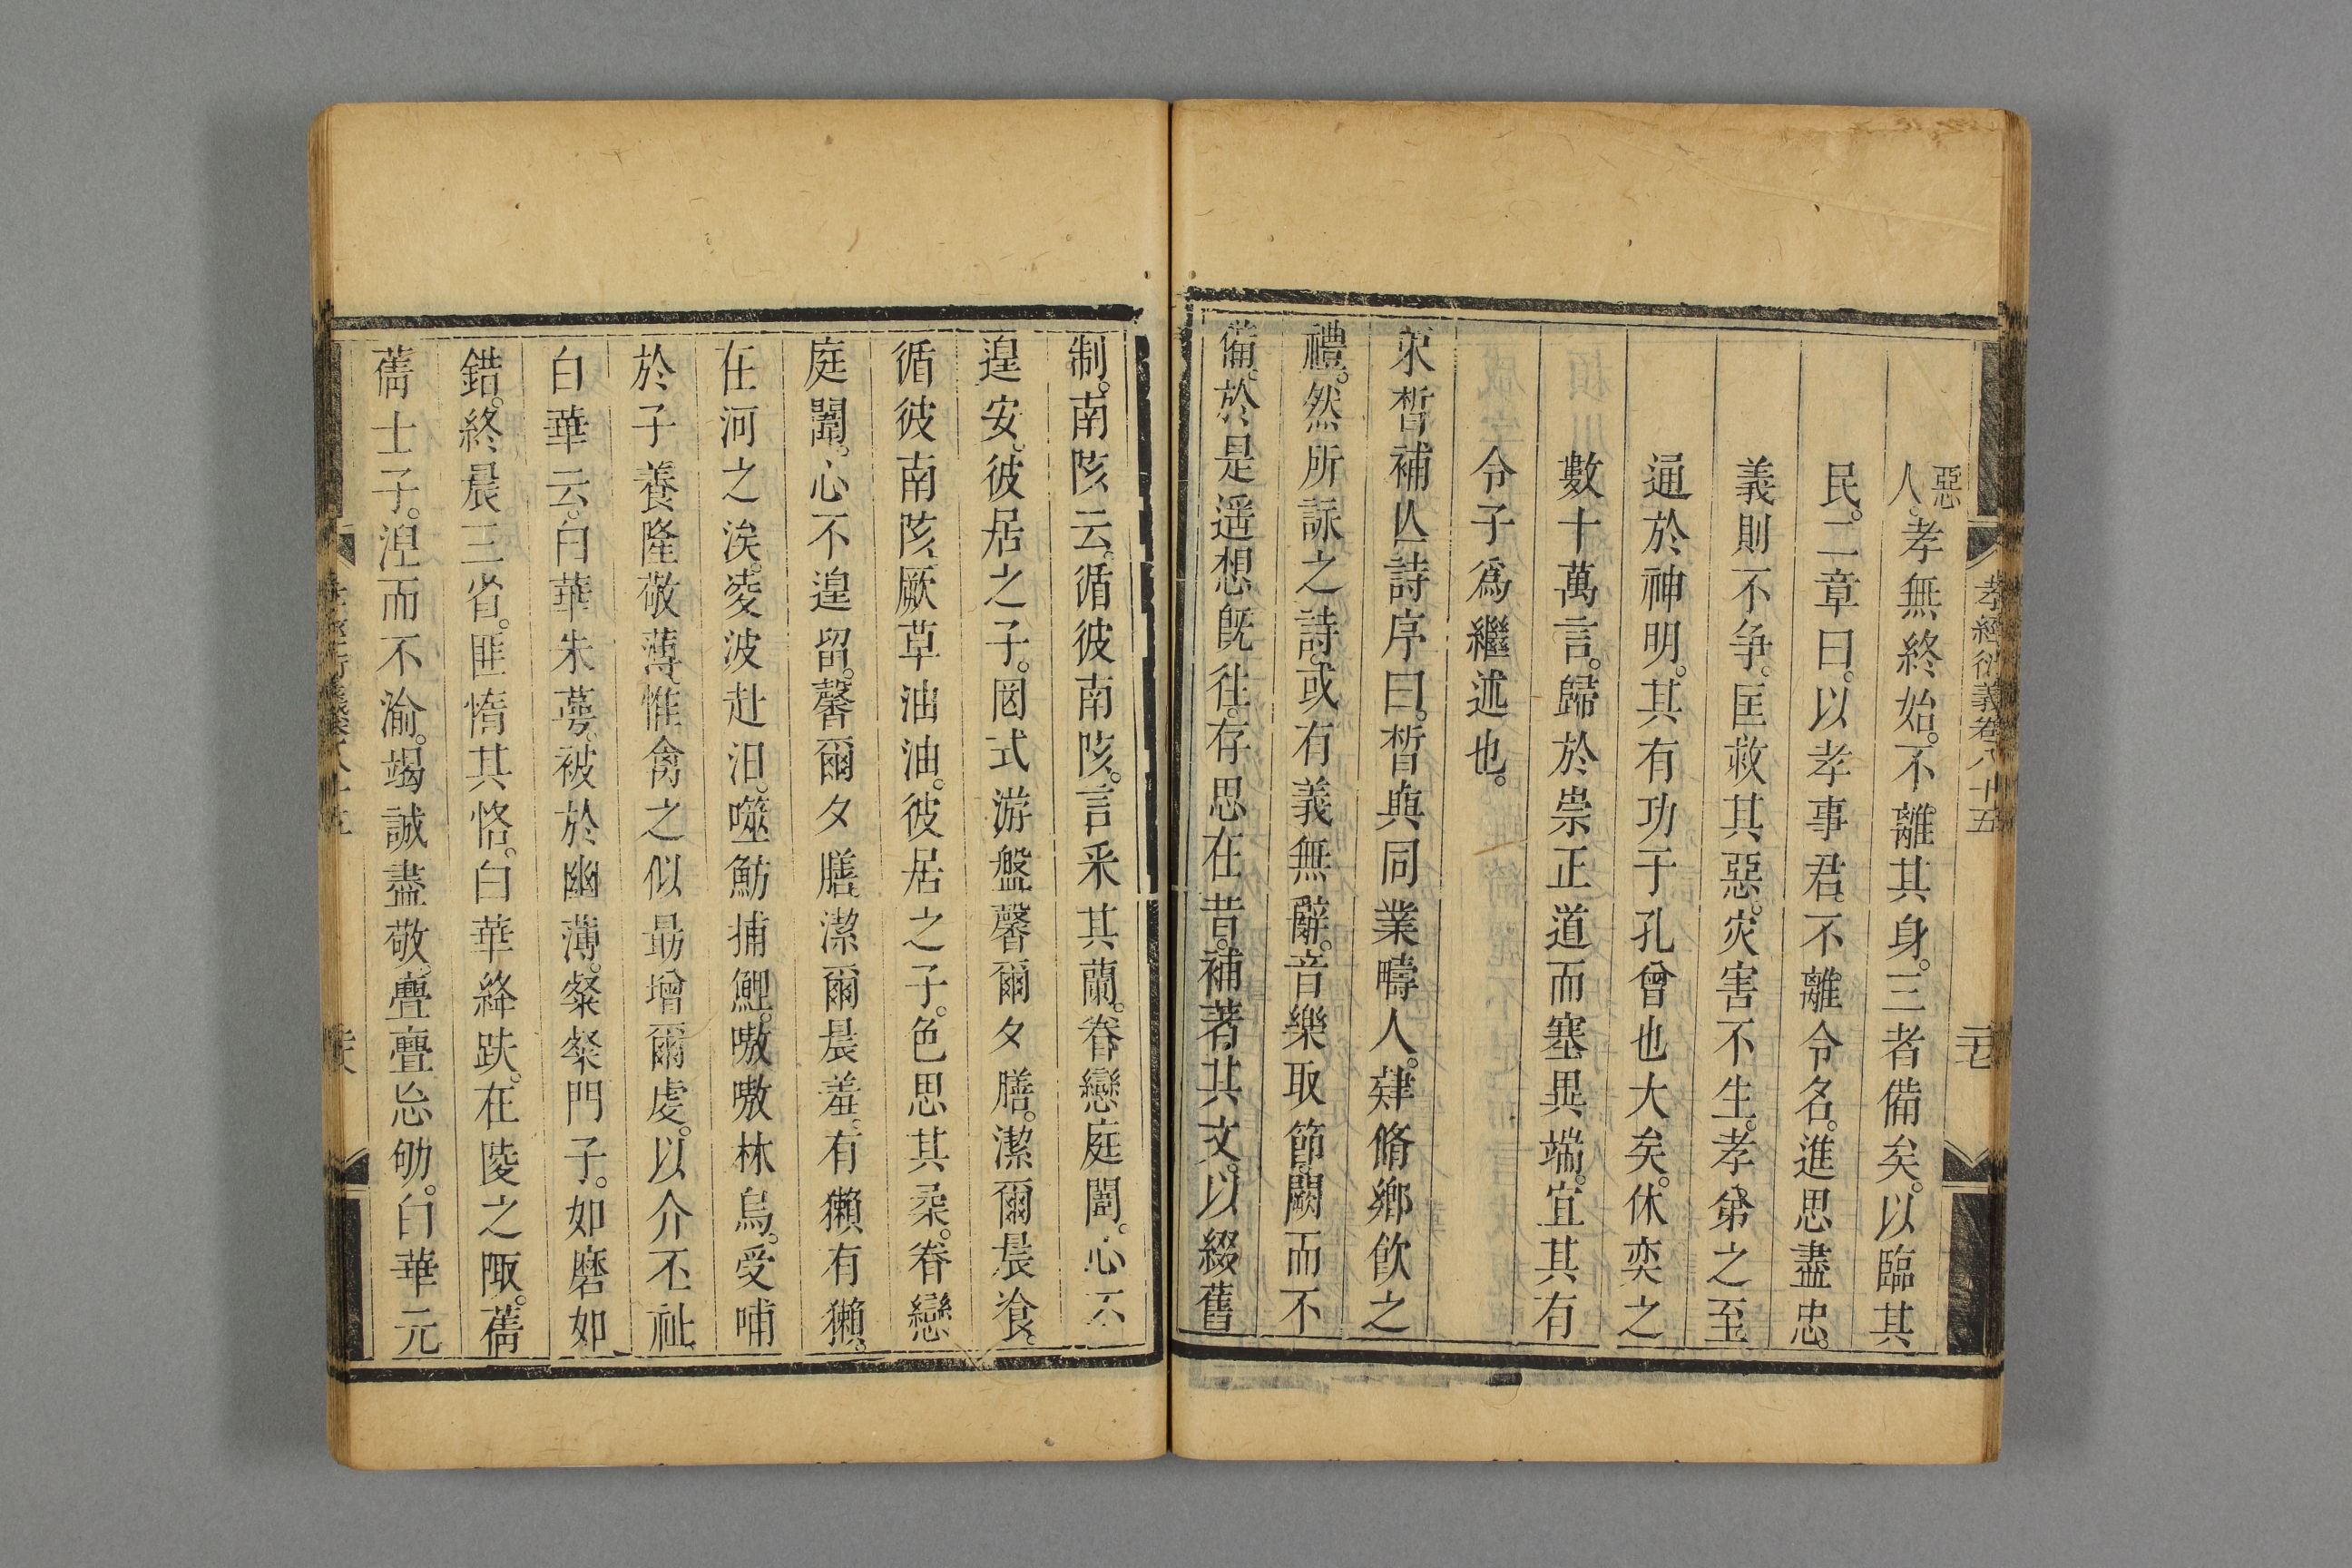 孝經衍義卷八十五
惡
人。孝無終始。不離其身。三者備矣。以臨其
民。二章曰。以孝事君。不離令名。進思盡忠。
義則不爭。匡救其惡。災害不生。孝弟之至。
通於神明。其有功于孔曾也大矣。休奕之
數十萬言。歸於崇正道而塞異端。宜其有
令子爲繼述也。
束晳補亾詩序曰。晳與同業疇人。肄脩鄉飮之
禮。然所詠之詩。或有義無辭。音樂取節。闕而不
備。於是遥想旣徃。存思在昔。補著其文。以綴舊
制。南陔云。循彼南陔。言采其蘭。眷戀庭闈。心不
遑安。彼居之子。罔式游盤。馨爾夕膳。潔爾晨飡。
循彼南陔。厥草油油。彼居之子。色思其柔。眷戀
庭闈。心不遑留。馨爾夕膳。潔爾晨羞。有獺有獺。
在河之涘。凌波赴汨。噬魴捕鯉。嗷嗷林烏。受哺
於子。養隆敬薄。惟禽之似。勗增爾虔。以介丕祉
白華云。白華朱萼。被於幽薄。粲粲門子。如磨如
錯。終晨三省。匪惰其恪。白華絳趺。在陵之陬。蒨
蒨士子。湼而不渝。竭誠盡敬。亹亹忘劬。白華元